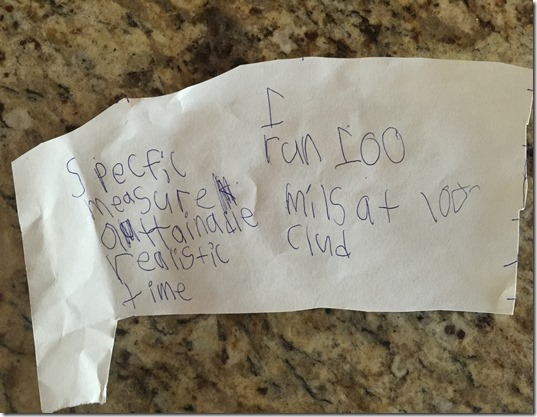 Specfic
measure
attainadle
realistic
time
I
run 100
mils at 100
clud